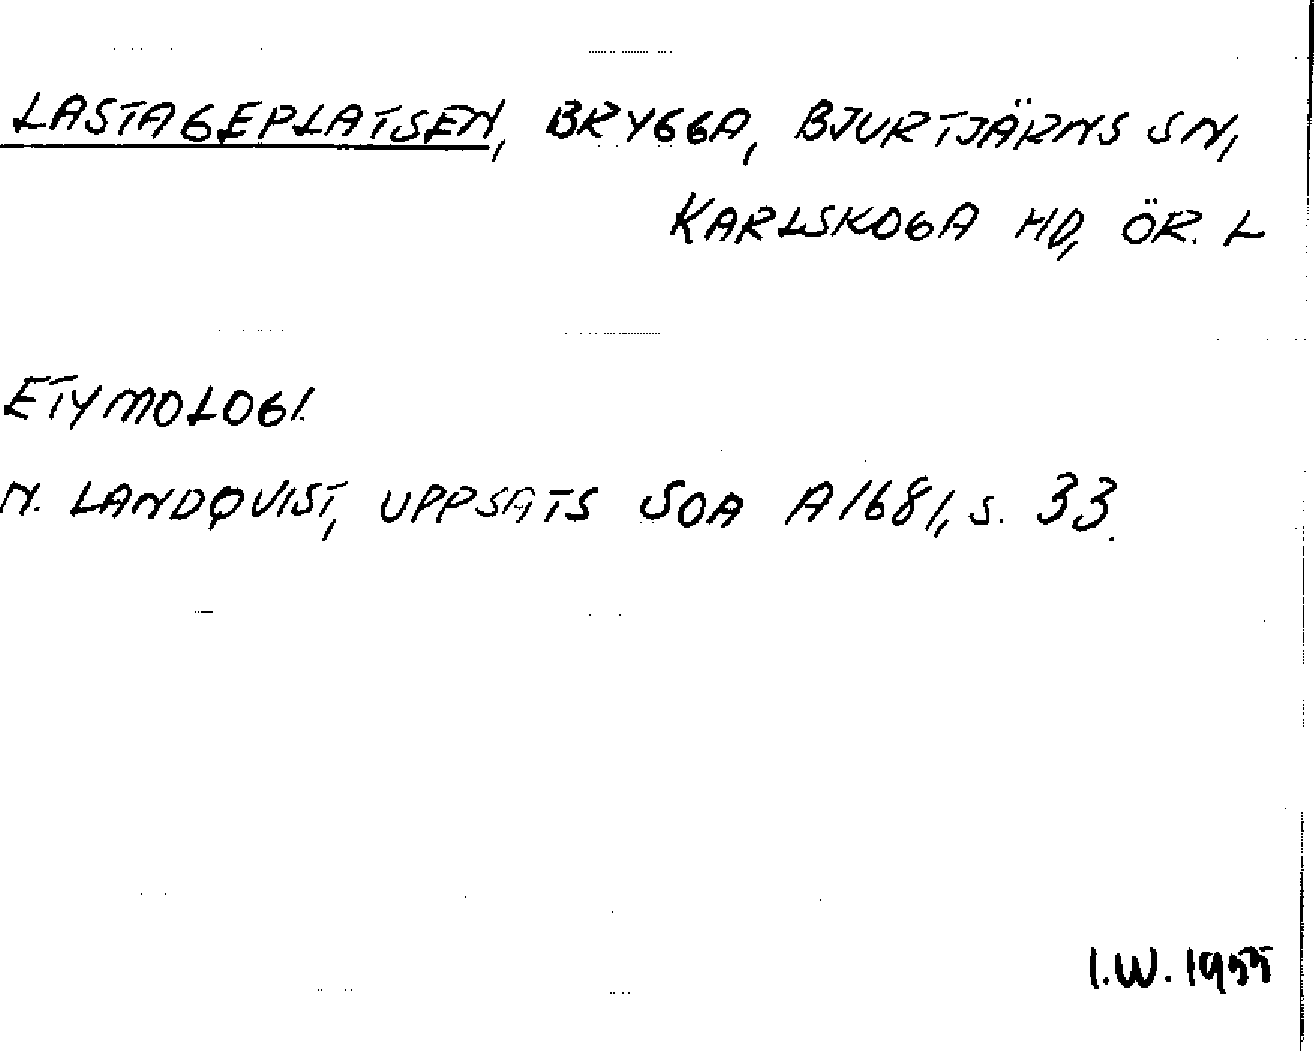 LASTAGEPLATSEN, BRYGGA, BJURTJÄRNS SN,
KARLSKOGA HD, ÖR. L
ETYMOLOGI.
N. LANDQVIST, UPPSATS SOA A1681, S. 33.
I.W. 1955